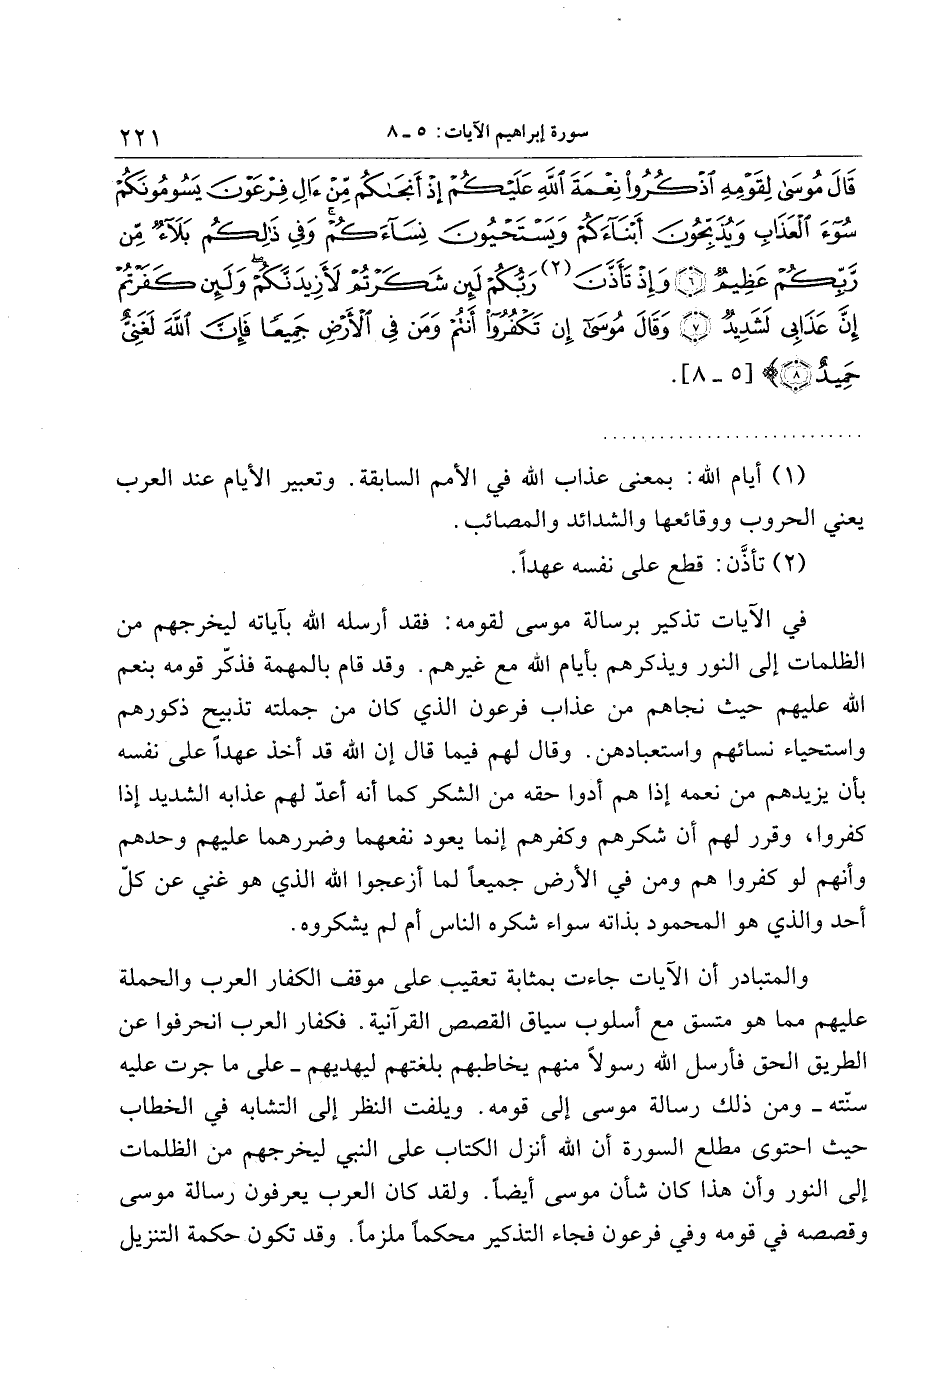 سورة إبراهيم الآيات: ٥ ـ ٨
٢٢١
قَالَ مُوسَىٰ لِقَوْمِهِ ٱذْكُرُوا۟ نِعْمَةَ ٱللَّهِ عَلَيْكُمْ إِذْ أَنجَىٰكُم مِّنْ ءَالِ فِرْعَوْنَ يَسُومُونَكُمْ
سُوٓءَ ٱلْعَذَابِ وَيُذَبِّحُونَ أَبْنَآءَكُمْ وَيَسْتَحْيُونَ نِسَآءَكُمْ ۚ وَفِى ذَٰلِكُم بَلَآءٌ مِّن
رَّبِّكُمْ عَظِيمٌ ﴿٦﴾ وَإِذْ تَأَذَّنَ (٢) رَبُّكُمْ لَئِن شَكَرْتُمْ لَأَزِيدَنَّكُمْ ۖ وَلَئِن كَفَرْتُمْ
إِنَّ عَذَابِى لَشَدِيدٌ ﴿٧﴾ وَقَالَ مُوسَىٰٓ إِن تَكْفُرُوٓا۟ أَنتُمْ وَمَن فِى ٱلْأَرْضِ جَمِيعًا فَإِنَّ ٱللَّهَ لَغَنِىٌّ
حَمِيدٌ ﴿٨﴾﴾ [٥ ـ ٨].
..........................
(١) أيام الله: بمعنى عذاب الله في الأمم السابقة. وتعبير الأيام عند العرب
يعني الحروب ووقائعها والشدائد والمصائب.
(٢) تأذَّن: قطع على نفسه عهداً.
في الآيات تذكير برسالة موسى لقومه: فقد أرسله الله بآياته ليخرجهم من
الظلمات إلى النور ويذكرهم بأيام الله مع غيرهم. وقد قام بالمهمة فذكّر قومه بنعم
الله عليهم حيث نجاهم من عذاب فرعون الذي كان من جملته تذبيح ذكورهم
واستحياء نسائهم واستعبادهن. وقال لهم فيما قال إن الله قد أخذ عهداً على نفسه
بأن يزيدهم من نعمه إذا هم أدوا حقه من الشكر كما أنه أعدّ لهم عذابه الشديد إذا
كفروا، وقرر لهم أن شكرهم وكفرهم إنما يعود نفعهما وضررهما عليهم وحدهم
وأنهم لو كفروا هم ومن في الأرض جميعاً لما أزعجوا الله الذي هو غني عن كلّ
أحد والذي هو المحمود بذاته سواء شكره الناس أم لم يشكروه.
والمتبادر أن الآيات جاءت بمثابة تعقيب على موقف الكفار العرب والحملة
عليهم مما هو متسق مع أسلوب سياق القصص القرآنية. فكفار العرب انحرفوا عن
الطريق الحق فأرسل الله رسولاً منهم يخاطبهم بلغتهم ليهديهم ـ على ما جرت عليه
سنّته ـ ومن ذلك رسالة موسى إلى قومه. ويلفت النظر إلى التشابه في الخطاب
حيث احتوى مطلع السورة أن الله أنزل الكتاب على النبي ليخرجهم من الظلمات
إلى النور وأن هذا كان شأن موسى أيضاً. ولقد كان العرب يعرفون رسالة موسى
وقصصه في قومه وفي فرعون فجاء التذكير محكماً ملزماً. وقد تكون حكمة التنزيل